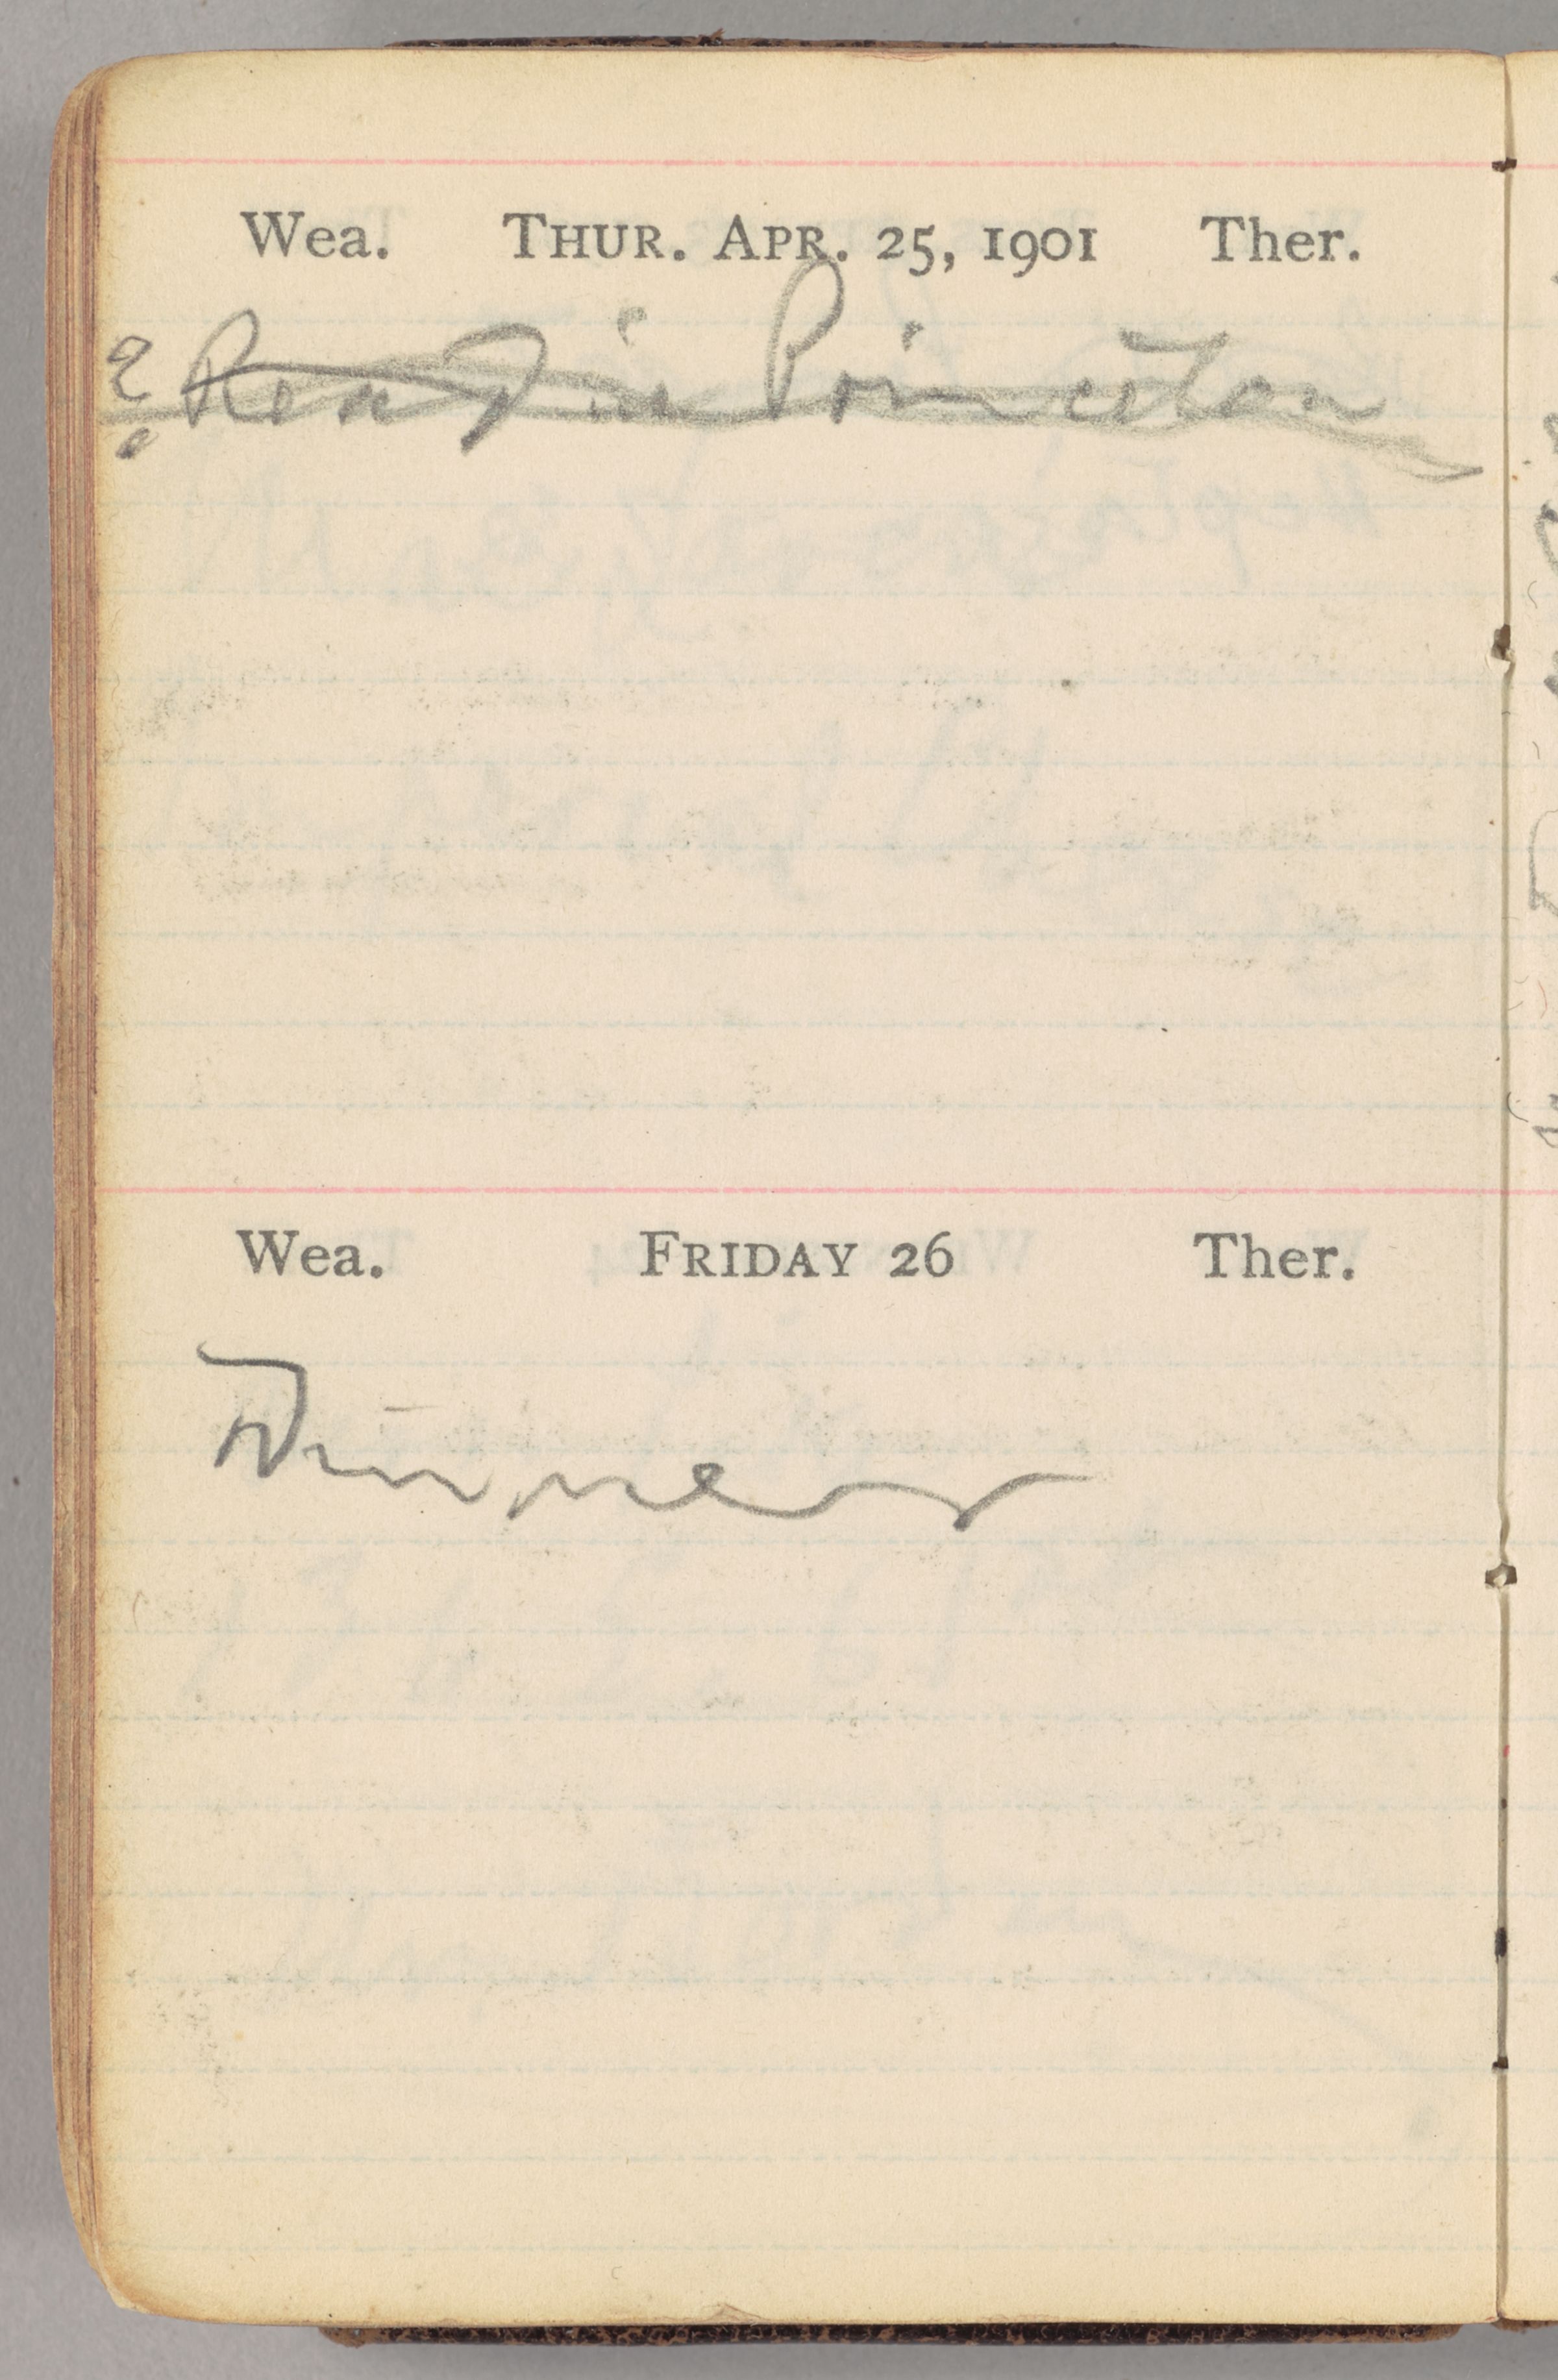 Wea. THUR. APR. 25, 1901 Ther.
? Read in Princeton
Wea. FRIDAY 26 Ther.
Dinner